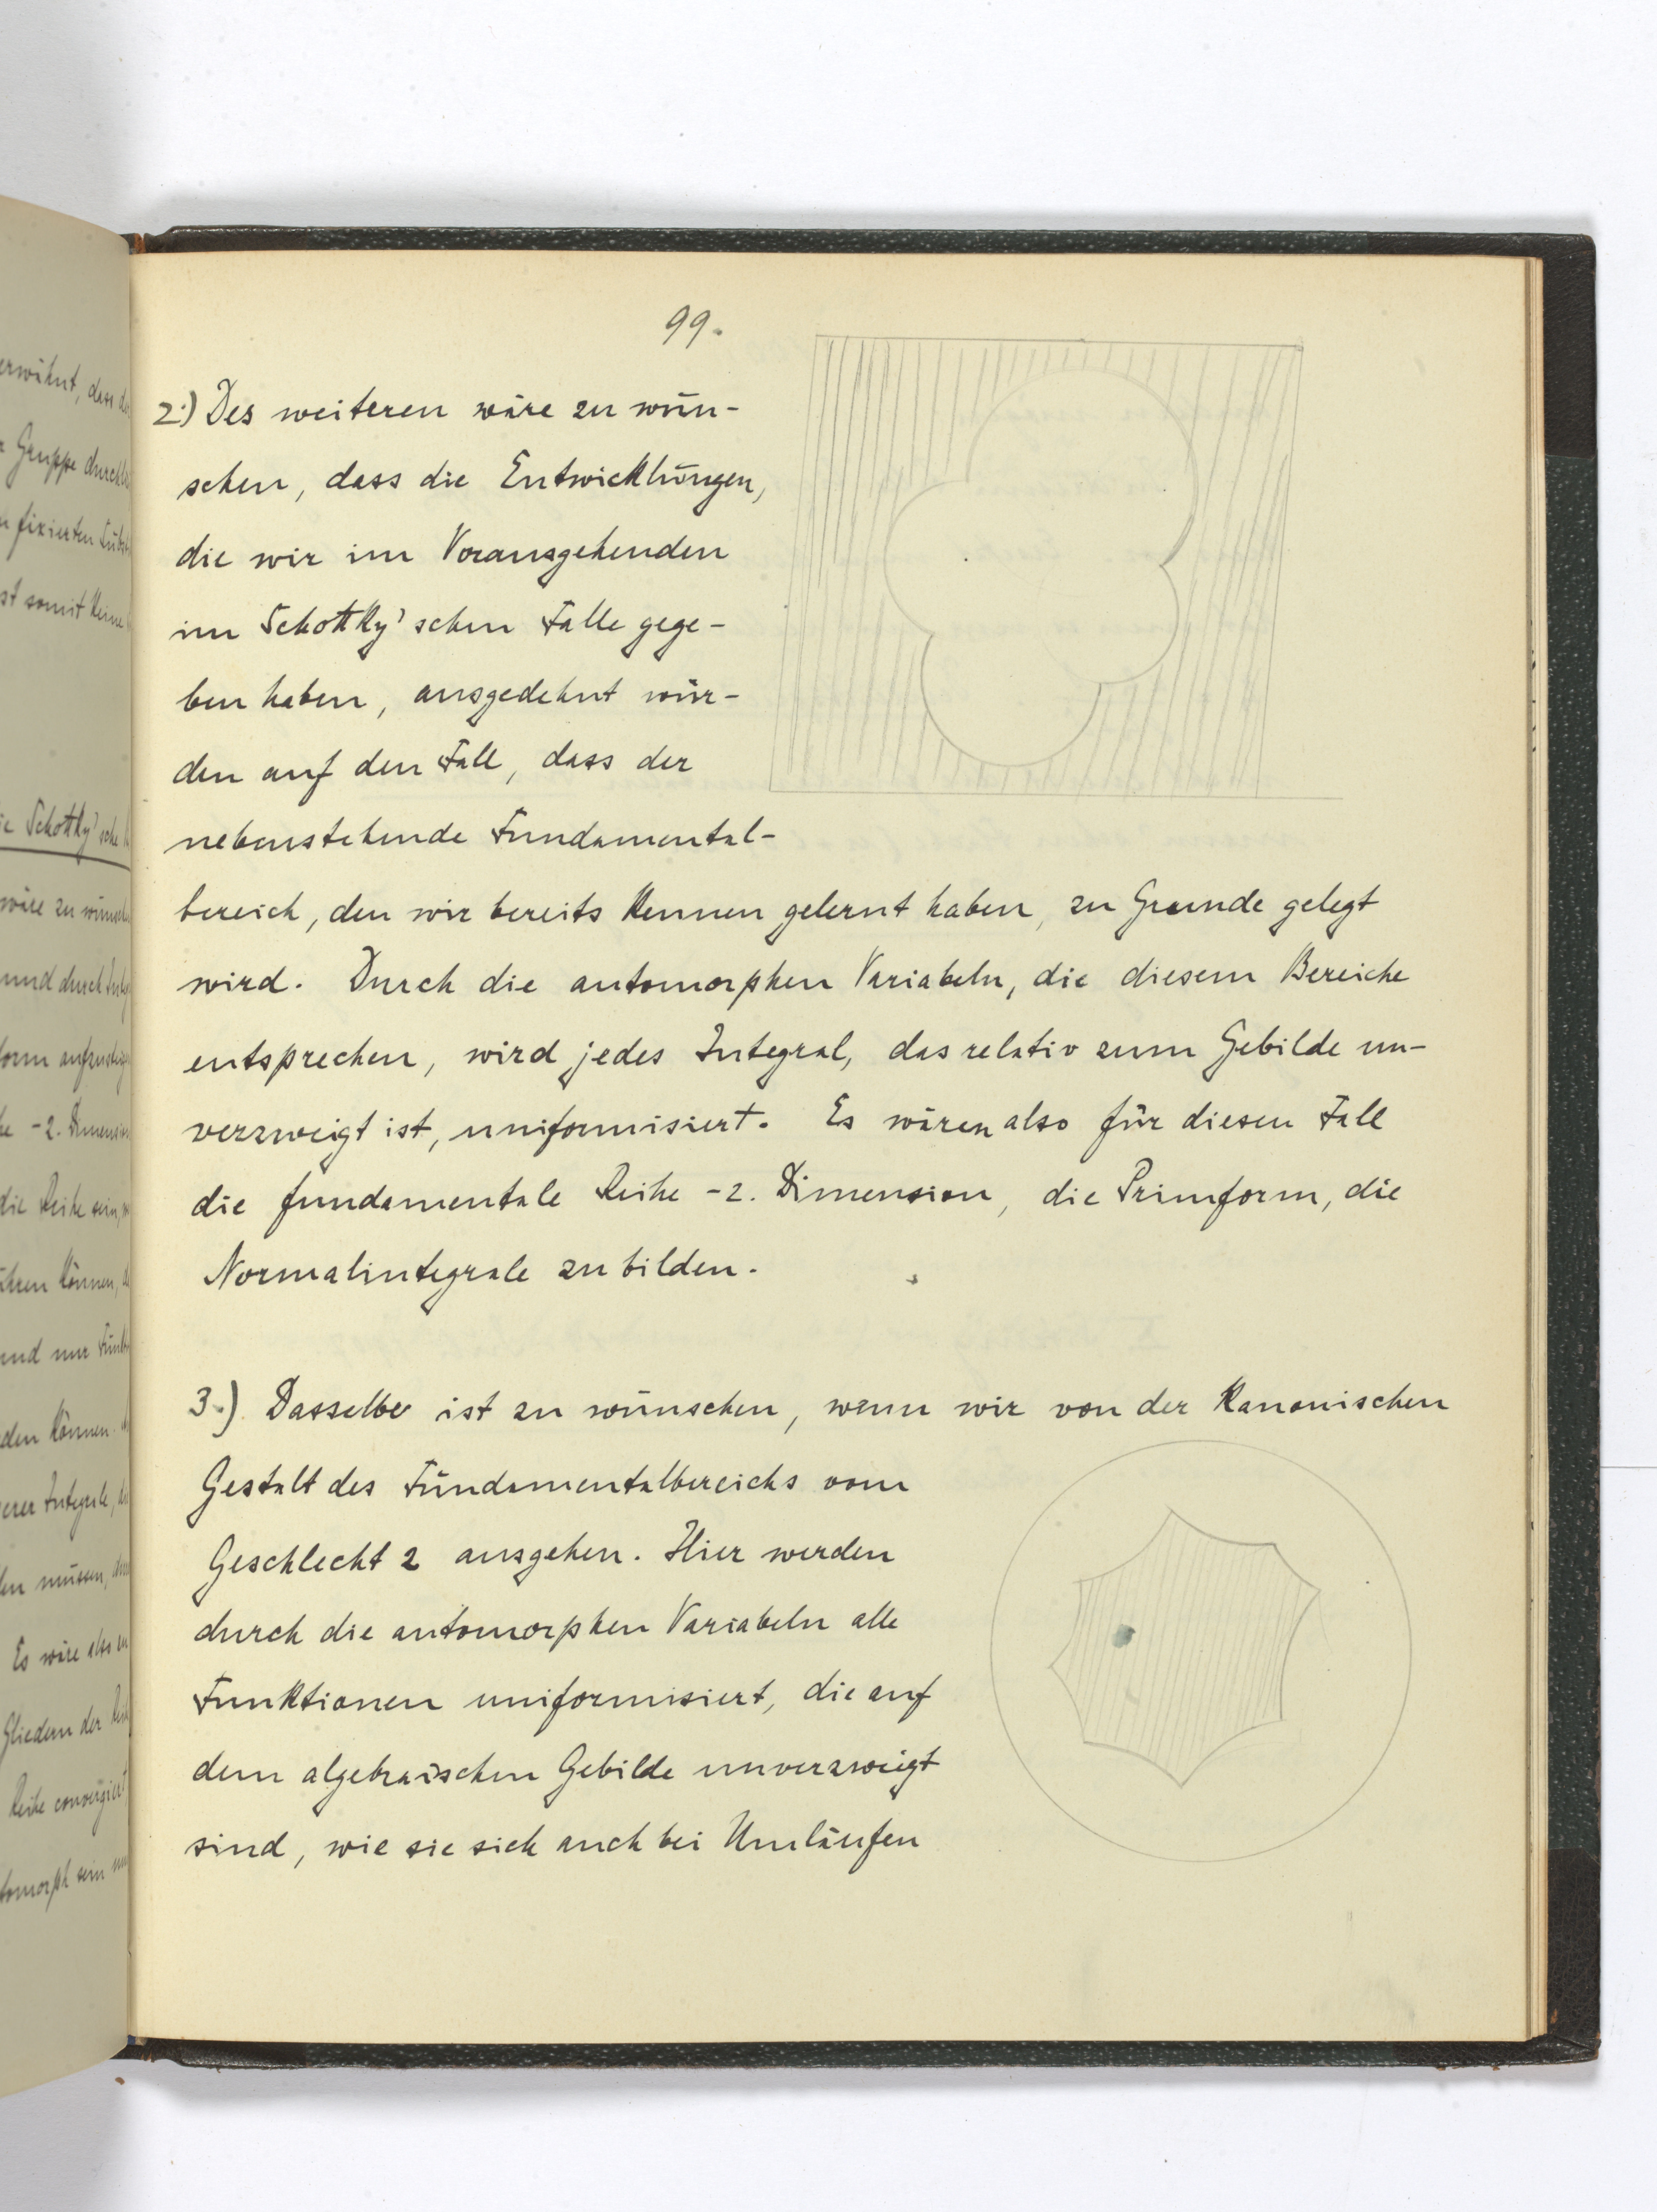 99.
2.) Des weiteren wäre zu wün-
schen, dass die Entwicklungen,
die wir im Vorausgehenden
im Schottky'schen Falle gege-
ben haben, ausgedehnt wür-
den auf den Fall, dass der
nebenstehende Fundamental-
bereich, den wir bereits kennen gelernt haben, zu Grunde gelegt
wird. Durch die automorphen Variabeln, die diesem Bereiche
entsprechen, wird jedes Integral, das relativ zum Gebilde un-
verzweigt ist, uniformisiert. Es wären also für diesen Fall
die fundamentale Reihe -2. Dimension, die Primform, die
Normalintegrale zu bilden.
3.) Dasselbe ist zu wünschen, wenn wir von der kanonischen
Gestalt des Fundamentalbereichs vom
Geschlecht 2 ausgehen. Hier werden
durch die automorphen Variabeln alle
Funktionen uniformisiert, die auf
dem algebraischen Gebilde unverzweigt
sind, wie sie sich auch bei Umläufen
erwähnt, dass
Gruppe
fixierten
st somit keine
Schottky'sche
wäre zu
und durch
-2. Dimension
die Reihe sein,
können,
und nur
den können.
Integrale,
müssen,
Es wäre also
Gliedern der
Reihe convergiert
sein